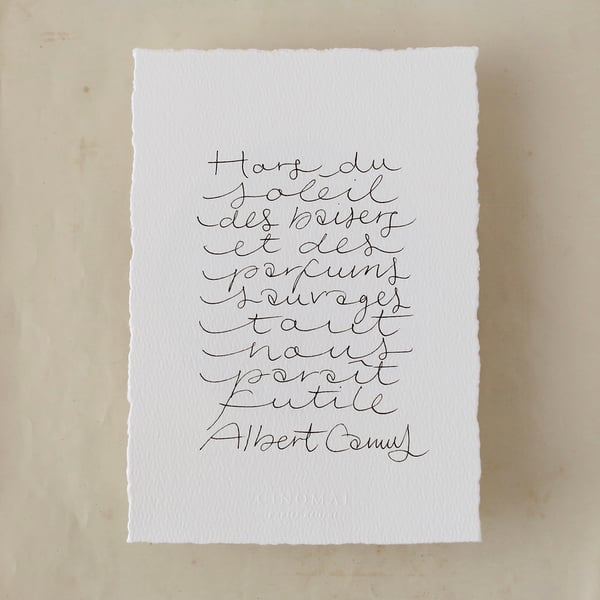 Hors du
soleil
des baisers
et des
parfums
sauvages
tout
nous
paraît
futile
Albert Camus
GINOMAI